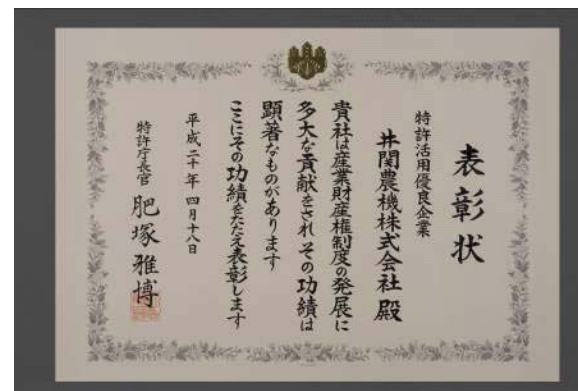 表彰状
特許活用優良企業
井関農機株式会社 殿
貴社は産業財産権制度の発展に
多大な貢献をされその功績は
顕著なものがあります
ここにその功績をたたえ表彰します
平成二十年 四月十八日
特許庁長官 肥塚雅博